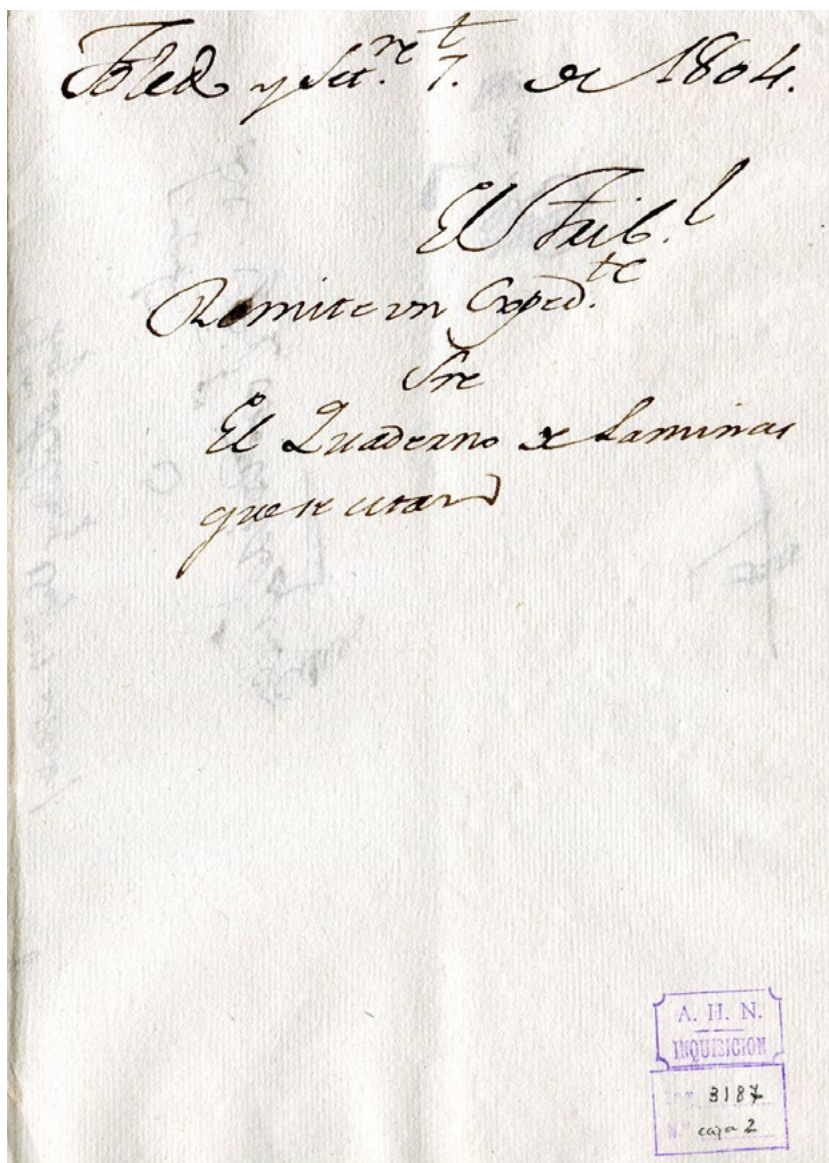 Toledo y Set.re 7. de 1804.
El Trib.l
Remite un Exped.te
Sre
El Quaderno de Laminas
que se citan
A. H. N.
INQUISICION
Leg. 3187
N.º caja 2